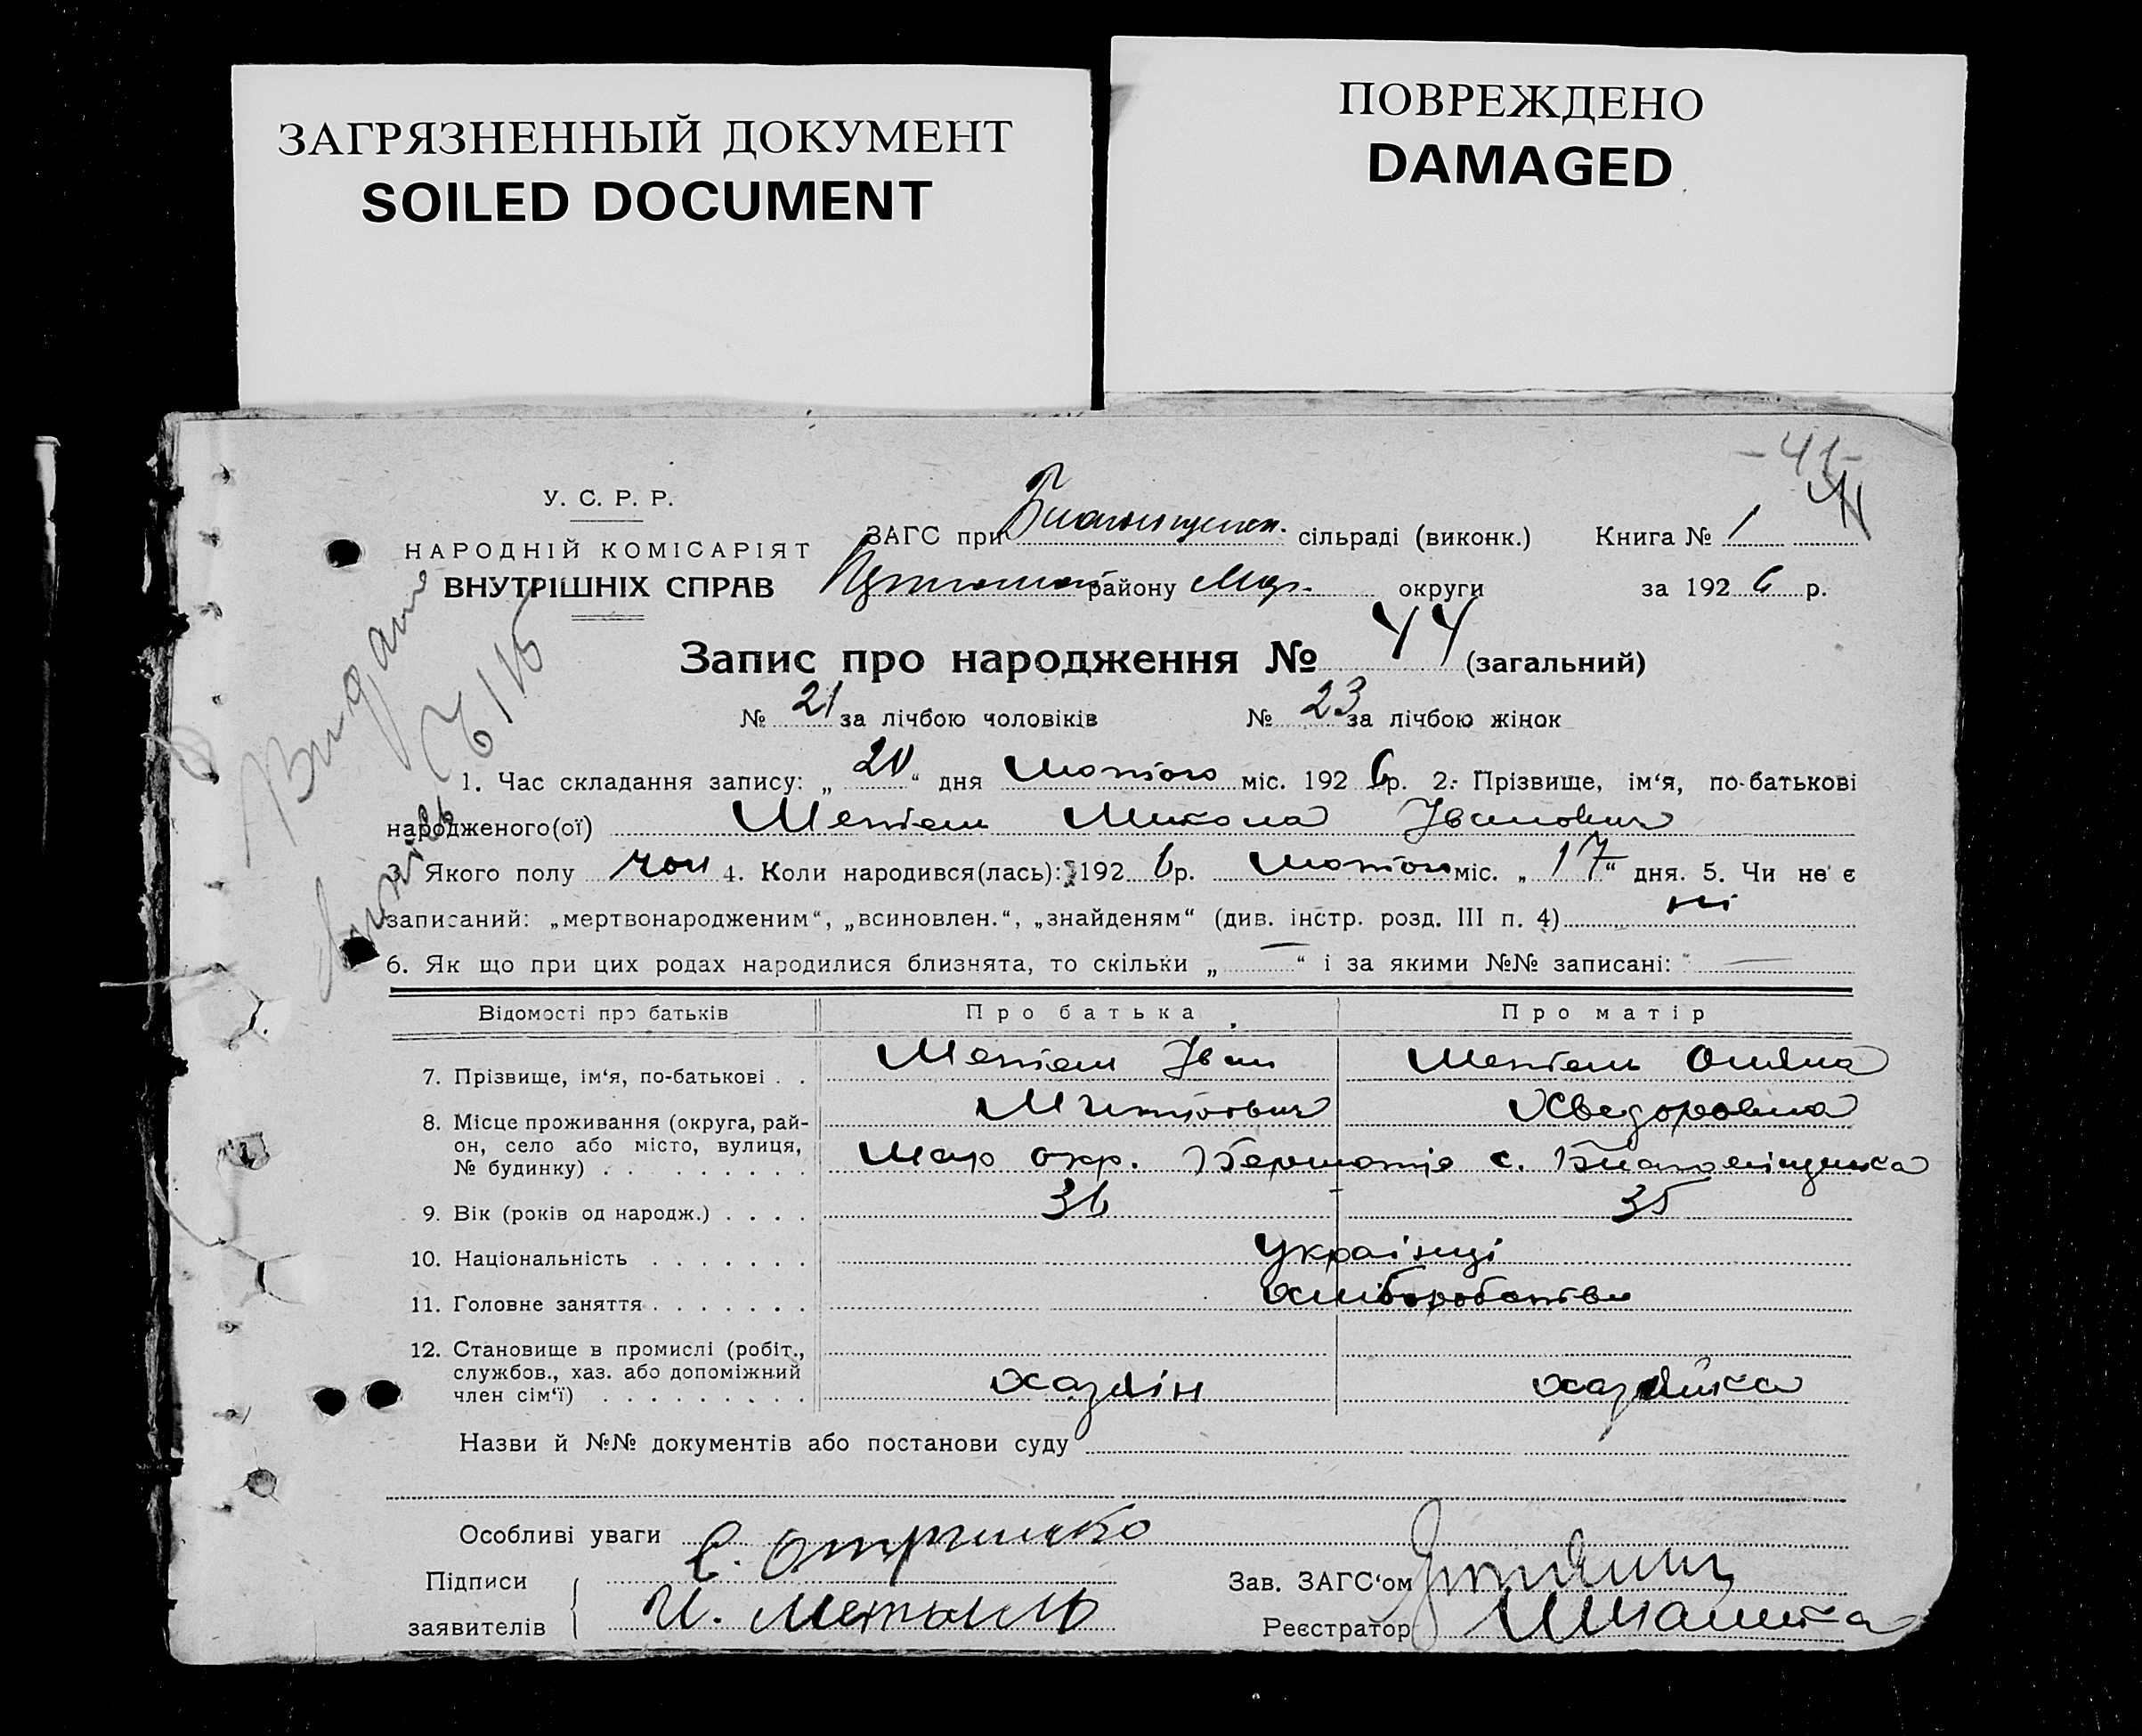 ЗАГРЯЗНЕННЫЙ ДОКУМЕНТ
SOILED DOCUMENT
ПОВРЕЖДЕНО
DAMAGED
-41-
У. С. Р. Р.
НАРОДНІЙ КОМІСАРІЯТ
ВНУТРІШНІХ СПРАВ
ЗАГС при сільраді (виконк.) Книга № 1
району Мар. округи за 1926 р.
Запис про народження № 44 (загальний)
№ 21 за лічбою чоловіків № 23 за лічбою жінок
1. Час складання запису: „20“ дня Лютого міс. 1926 р. 2. Прізвище, ім‘я, по-батькові
народженого(ої) Метель Микола Іванович
3. Якого полу чол 4. Коли народився(лась): 1926 р. Лютого міс. „17“ дня. 5. Чи не є
записаний: „мертвонародженим“, „всиновлен.“, „знайденям“ (див. інстр. розд. III п. 4) ні
6. Як що при цих родах народилися близнята, то скільки „—“ і за якими №№ записані: —
Відомості про батьків Про батька Про матір
7. Прізвище, ім‘я, по-батькові . . Метель Іван Метель Оляна
Хведоровна
8. Місце проживання (округа, рай-
он, село або місто, вулиця,
№ будинку) . . . . . . . . Мар окр. с.
9. Вік (років од народж.) . . . . 36 35
10. Національність . . . . . . . Українці
11. Головне заняття . . . . . . . Хліборобство
12. Становище в промислі (робіт.,
службов., хаз. або допоміжний
член сім‘ї) . . . . . . . . . хазяін хазяйка
Назви й №№ документів або постанови суду
Особливі уваги
Підписи
заявителів И. Метыль
Зав. ЗАГС‘ом
Реєстратор